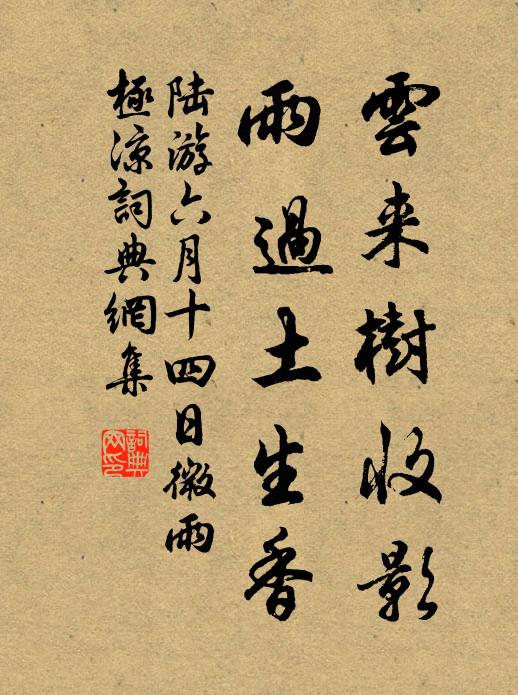 雲来樹收影
雨過土生香
陸游六月十四日微雨
極凉詞典網集
詞典
网印